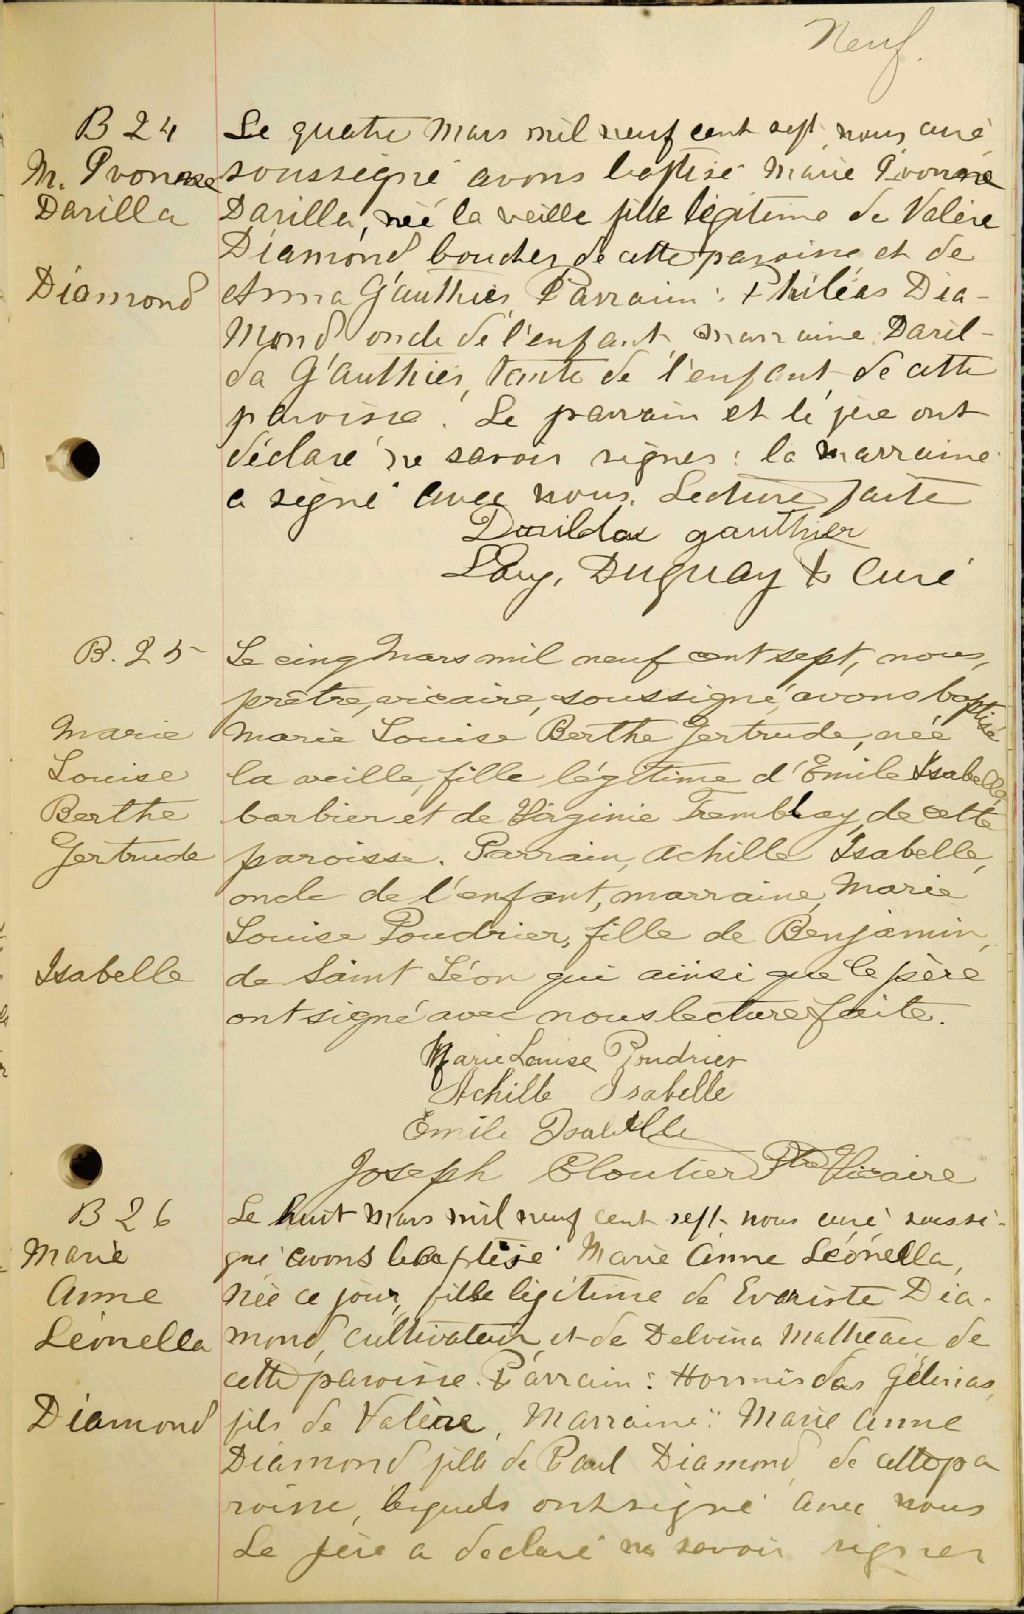 Neuf.
B 24
M. Yvonne
Darilla
Diamond
Le quatre Mars mil neuf cent sept nous, curé
soussigné avons baptisé Marie Yvonne
Darilla, née la veille fille légitime de Valère
Diamond boucher de cette paroisse et de
Anna Gauthier, Parrain : Philéas Dia-
mond oncle de l'enfant, marraine Daril-
da Gauthier, tante de l'enfant de cette
paroisse. Le parrain et le père ont
déclaré ne savoir signer : la marraine
a signé avec nous. Lecture faite
Darilda gauthier
Duguay Ptre Curé
B. 25
Marie
Louise
Berthe
Gertrude
Isabelle
Le cinq Mars mil neuf cent sept, nous,
prêtre, vicaire, soussigné, avons baptisé
Marie Louise Berthe Gertrude, née
la veille, fille légitime d'Emile Isabelle,
barbier et de Virginie Tremblay, de cette
paroisse. Parrain, Achille Isabelle,
oncle de l'enfant, marraine, Marie
Louise Poudrier, fille de Benjamin,
de Saint Léon qui ainsi que le père
ont signé avec nous lecture faite.
Marie Louise Poudrier
Achille Isabelle
Emile Isabelle
Joseph Cloutier Ptre Vicaire
B 26
Marie
Anne
Léonella
Diamond
Le huit Mars mil neuf cent sept nous curé soussi-
gné avons baptisé Marie Anne Léonella,
née ce jour, fille légitime de Evariste Dia-
mond, cultivateur et de Delvina Matheau de
cette paroisse. Parrain : Hormisdas Gélinas,
fils de Valère, Marraine : Marie Anne
Diamond fille de Paul Diamond, de cette pa
roisse, lesquels ont signé avec nous
Le père a déclaré ne savoir signer